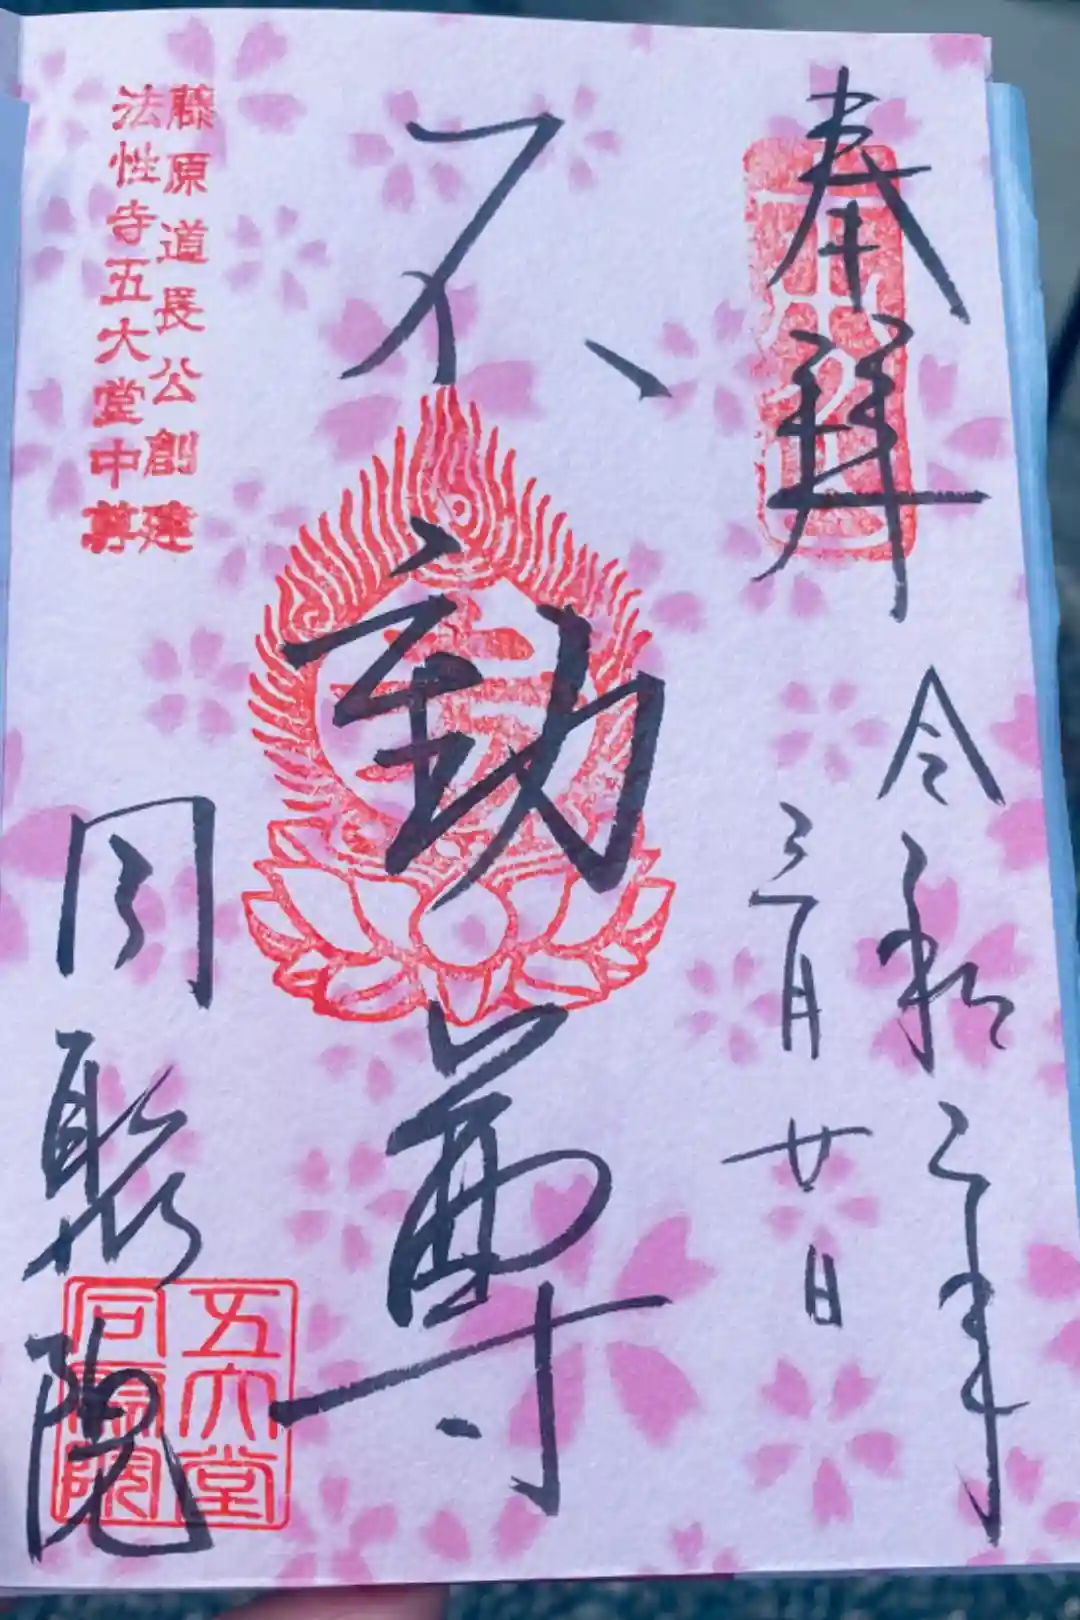 奉拝
令和二年
三月廿日
不動尊
藤原道長公創建
法性寺五大堂中尊
同聚院
五大堂
同聚院